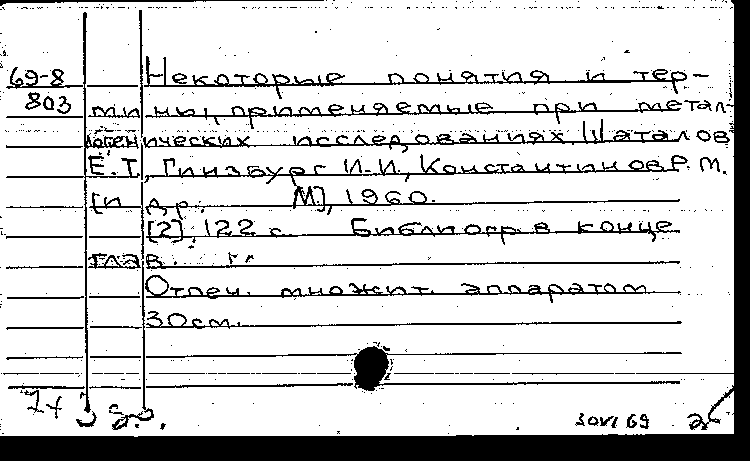 69-8 Некоторые понятия и тер-
803 мины, применяемые при метал-
логенических исследованиях. Шаталов
Е.Т., Гинзбург И.И., Константинов Р.М.
[и др. М], 1960.
[2], 122 с. Библиогр. в конце
глав.
Отпеч. множит. аппаратом
30см.
30 VI 69